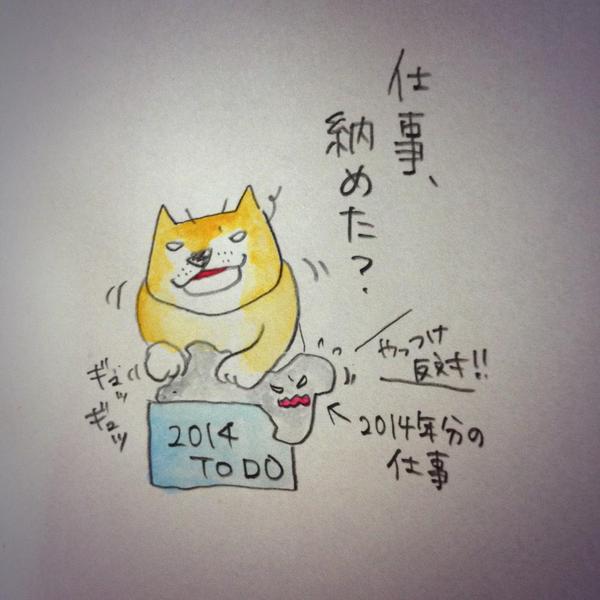 仕事、
納めた？
やっつけ
反対!!
ギュッ
ギュッ
2014年分の
仕事
2014
TO DO